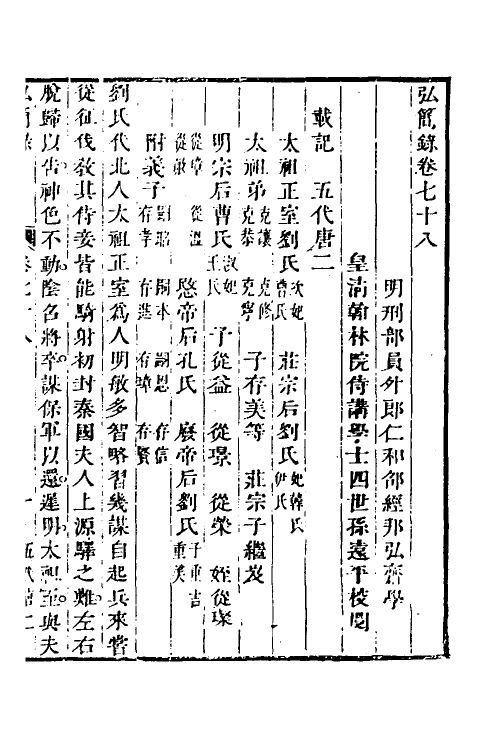 弘簡錄卷七十八
明刑部員外郎仁和邵經邦弘齋學
皇淸翰林院侍講學士四世孫遠平校閱
載記　五代唐二
太祖正室劉氏次妃曹氏　莊宗后劉氏妃韓氏伊氏
太祖弟克讓克恭　克修克寧　子存美等　莊宗子繼岌
明宗后曹氏淑妃王氏　子從益　從璟　從榮　姪從璨
從璋　從溫　從敏　愍帝后孔氏　廢帝后劉氏子重吉重美
附義子嗣昭　嗣本　嗣恩　存信　存孝　存進　存璋　存賢
劉氏代北人太祖正室爲人明敏多智略習幾謀自起兵來嘗
從征伐敎其侍妾皆能騎射初封秦國夫人上源驛之難左右
脫歸以告神色不動陰名將卒謀保軍以還遲明太祖至與夫
弘簡錄　卷七十八　一　五代唐二